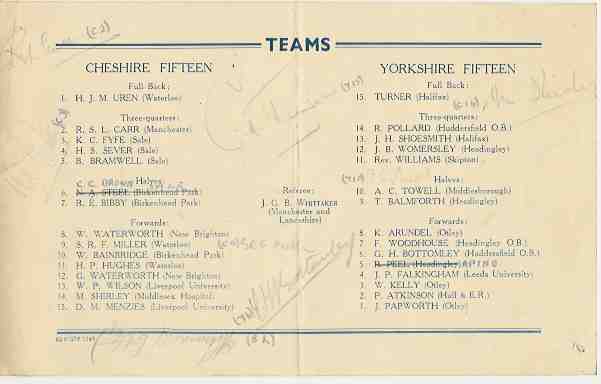 TEAMS
CHESHIRE FIFTEEN
Full Back:
1. H. J. M. UREN (Waterloo)
Three-quarters:
2. R. S. L. CARR (Manchester)
3. K. C. FYFE (Sale)
4. H. S. SEVER (Sale)
5. B. BRAMWELL (Sale)
Halves:
C. C. BROWN
6. N. A. STEEL (Birkenhead Park)
7. R. E. BIBBY (Birkenhead Park)
Forwards:
8. W. WATERWORTH (New Brighton)
9. S. R. F. MILLER (Waterloo)
10. W. BAINBRIDGE (Birkenhead Park)
11. H. P. HUGHES (Waterloo)
12. G. WATERWORTH (New Brighton)
13. W. P. WILSON (Liverpool University)
14. M. SHIRLEY (Middlesex Hospital)
15. D. M. MENZIES (Liverpool University)
Referee:
J. G. B. WHITTAKER
(Manchester and
Lancashire)
YORKSHIRE FIFTEEN
Full Back:
15. TURNER (Halifax)
Three-quarters:
14. R. POLLARD (Huddersfield O.B.)
13. J. H. SHOESMITH (Halifax)
12. J. B. WOMERSLEY (Headingley)
11. Rev. WILLIAMS (Skipton)
Halves:
10. A. C. TOWELL (Middlesborough)
9. T. BALMFORTH (Headingley)
Forwards:
8. K. ARUNDEL (Otley)
7. F. WOODHOUSE (Headingley O.B.)
6. G. H. BOTTOMLEY (Huddersfield O.B.)
5. R. PEEL (Headingley)
4. J. P. FALKINGHAM (Leeds University)
3. W. KELLY (Otley)
2. P. ATKINSON (Hull & E.R.)
1. J. PAPWORTH (Otley)